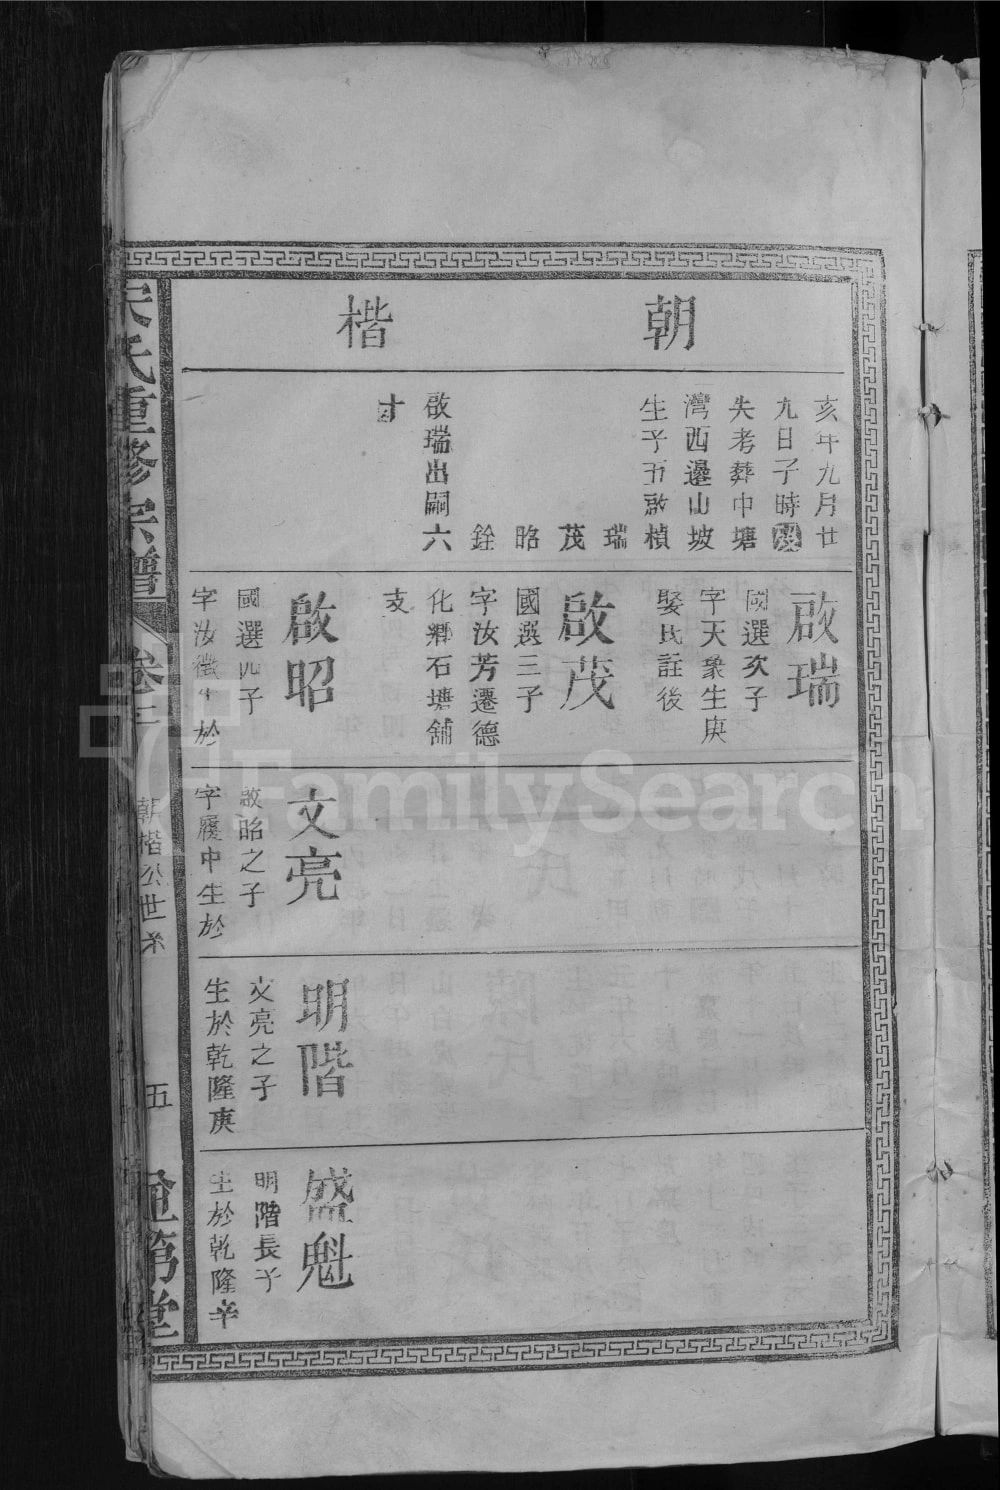 朝楷
亥年九月廿
九日子時歿
失考葬中塘
灣西邊山坡
生子五啟楨
瑞
茂
昭
銓
啟瑞出嗣六
才
啟瑞
國選次子
字天象生庚
娶氏註後
啟茂
國選三子
字汝芳遷德
化鄉石塘舖
支
啟昭
國選四子
字汝徵生於
文亮
啟昭之子
字履中生於
明階
文亮之子
生於乾隆庚
盛魁
明階長子
生於乾隆辛
宋氏重修宗譜
卷三
朝楷公世系
五
第堂
FamilySearch